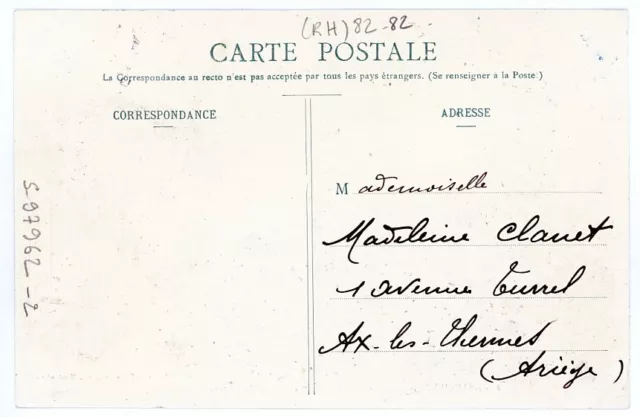 (RH) 82-82
CARTE POSTALE
La Correspondance au recto n'est pas acceptée par tous les pays étrangers. (Se renseigner à la Poste.)
CORRESPONDANCE
ADRESSE
Mademoiselle
Madeleine Clanet
1 avenue Turrel
Ax-les-Thermes
(Ariège)
S-97962-2